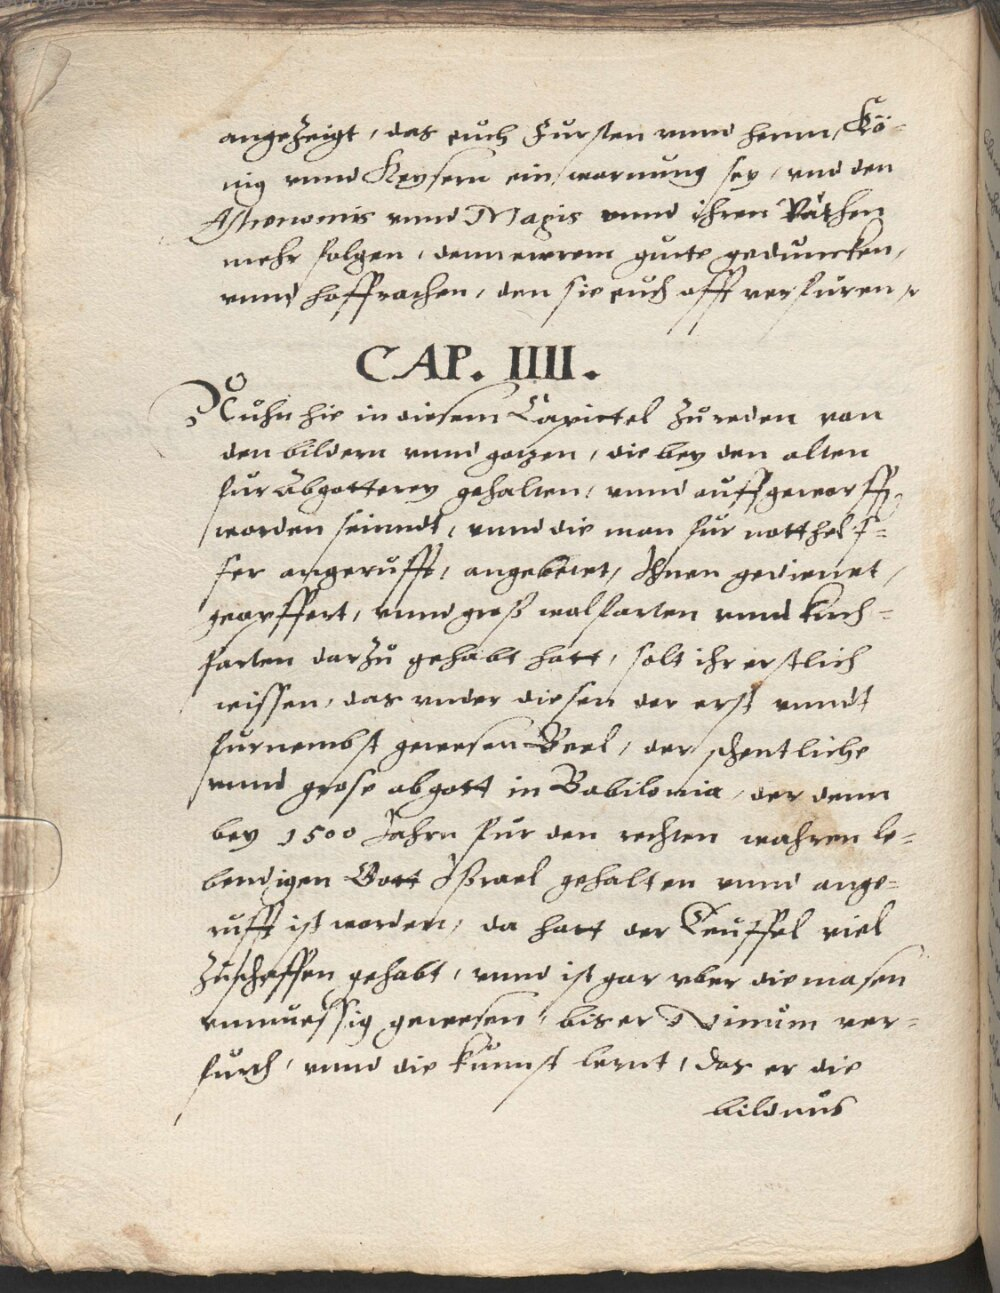 angezeigt, das euch Fursten unnd herrn, Kö-
nig unnd Keysern ein warnung sey, und den
Astronomis unnd Magis unnd ihren Räthen
mehr folgen, denn ewrem gutte geduncken,
unnd hoffrachen, den sie euch offt verfuren
CAP. IIII.
Nuhn hie in diesem Capittel zu reden von
den bildern unnd gotzen, die bey den alten
fur Abgotterey gehalten, unnd auffgeworffen
worden seinndt, unnd die man fur notthelf-
fer angerufft, angebetet, Ihnen gedienet,
geopffert, unnd groß walfarten unnd kirch-
farten darzu gehabt hatt, solt ihr erstlich
wissen, das under diesen der erst unndt
furnembst gewesen Beel, der schentliche
unnd grose abgott in Babilonia, der denn
bey 1500 Jahrn fur den rechten wahren le-
bendigen Gott Ißrael gehalten unnd ange-
rufft ist worden, da hatt der Teuffel viel
zuschaffen gehabt, unnd ist gar uber die masen
unmuessig gewesen, bis er Ninum ver-
furth, unnd die kunnst lernt, das er die
bildnus